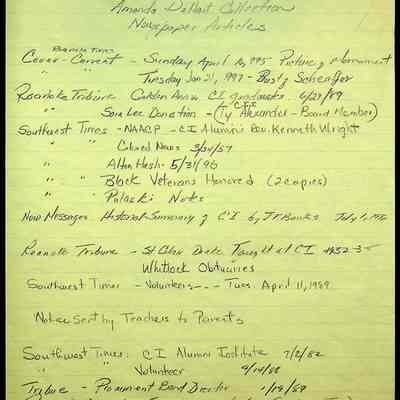 Amanda DeHart Collection
Newspaper Articles
Roanoke Times
Current - Sunday April 1995 Picture of Monument
" " Tuesday Jan 21, 1997 -
Roanoke Tribune Golden Anniv CI graduates 6/29/89
" Sara Lee Donation - (Ty Alexander - Board Member)
Southwest Times - NAACP - CI Alumni Rev. Kenneth Wright
" " Colored News 3/24/57
" " 5/31/96
" " Black Veterans Honored (2 copies)
" " Pulaski Notes
New Messages Historical Summary of CI by JF Banks July 1,
Roanoke Tribune - St Clair Drake Taught at CI 1932-35
Whitlock Obituaries
Southwest Times - Volunteers - - - Tues. April 11, 1989
Notice Sent by Teachers to Parents
Southwest Times: CI Alumni Institute 7/2/82
" " Volunteer 4/14/88
Tribune - Prominent Band Director 1/19/89